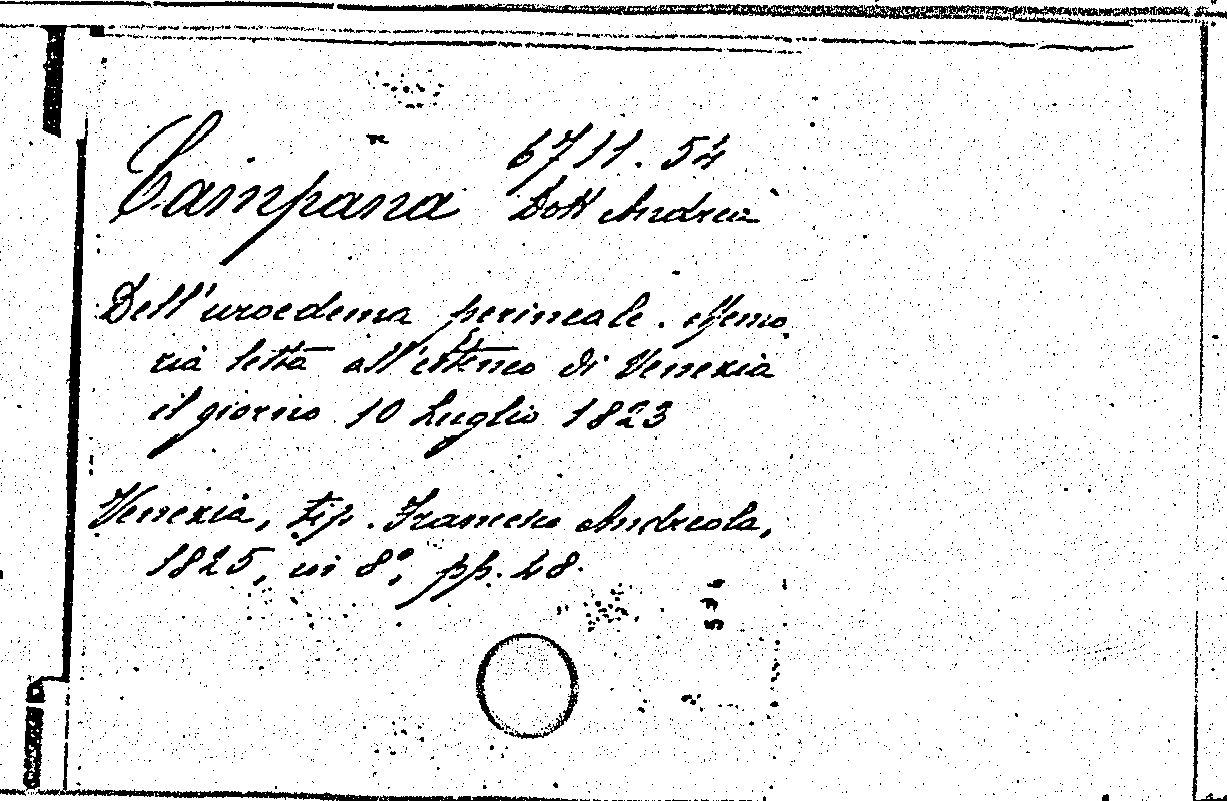 6711.54
Campana Dott Andrea
Dell'uroedema perineale. Memo
ria letta all'Ateneo di Venezia
il giorno 10 Luglio 1823
Venezia, tip. Francesco Andreola,
1825, in 8°, pp. 48.